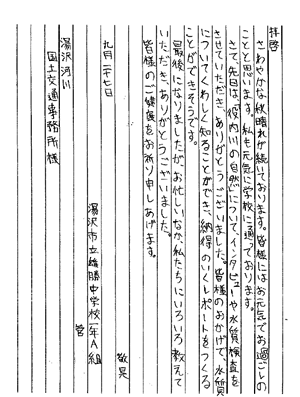 拝啓
さわやかな秋晴れが続いております。皆様にはお元気でお過ごしの
ことと思います。私も元気に学校に通っております。
さて、先日は「役内川の自然」について、インタビューや水質検査を
させていただき、ありがとうございました。皆様のおかげで、水質
についてくわしく知ることができ、納得のいくレポートをつくる
ことができそうです。
最後になりましたが、お忙しいなか、私たちにいろいろ教えて
いただき、ありがとうございます。
皆様のご健康をお祈り申しあげます。
敬具
九月二十七日
湯沢市立雄勝中学校一年A組
湯沢河川
国土交通事務所様